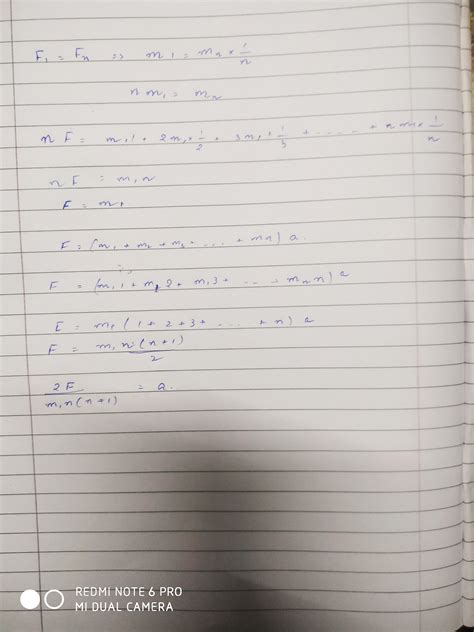 F₁ = Fn ⇒ m₁ 1 = mn × 1/n
n m₁ = mn
n F = m₁ 1 + 2m₁ × 1/2 + 3m₁ × 1/3 + ..... + n m₁ × 1/n
n F = m₁ n
F = m₁
F = (m₁ + m₂ + m₃ + ... + mn) a.
F = (m₁ 1 + m₁ 2 + m₁ 3 + ... + mn n) a
F = m₁ (1 + 2 + 3 + ... + n) a
F = m₁ n (n+1) / 2
2F / m₁ n (n+1) = a.
REDMI NOTE 6 PRO
MI DUAL CAMERA